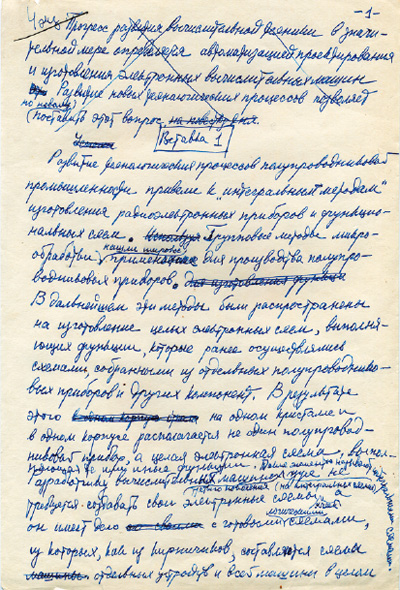 -1-
Прогресс развития вычислительной техники в значи-
тельной мере определяется автоматизацией проектирования
и изготовления электронных вычислительных машин
Развитие новых технологических процессов позволяет
по новому
поставить этот вопрос
Вставка 1
Развитие технологических процессов полупроводниковой
промышленности привели к "интегральным методам"
изготовления радиоэлектронных приборов и функцио-
нальных схем. Групповые методы микро-
нашли широкое
обработки применение для производства полупро-
водниковых приборов. для изготовления функции
В дальнейшем эти методы были распространены
на изготовление целых электронных схем, выполня-
ющих функции, которые ранее осуществлялись
схемами, собранными из отдельных полупроводнико-
вых приборов и других компонент. В результате
этого в одном корпусе на одном кристале и
в одном корпусе располагается не один полупровод-
никовый прибор, а целая электронная схема, выпол-
няющая те или иные функции.
Разработчику вычислительных машин уже не
требуется создавать свои электронные схемы, а
логическими
он имеет дело с готовыми схемами,
из которых, как из кирпичиков, составляются схемы
машины отдельных устройств и всей машины в целом